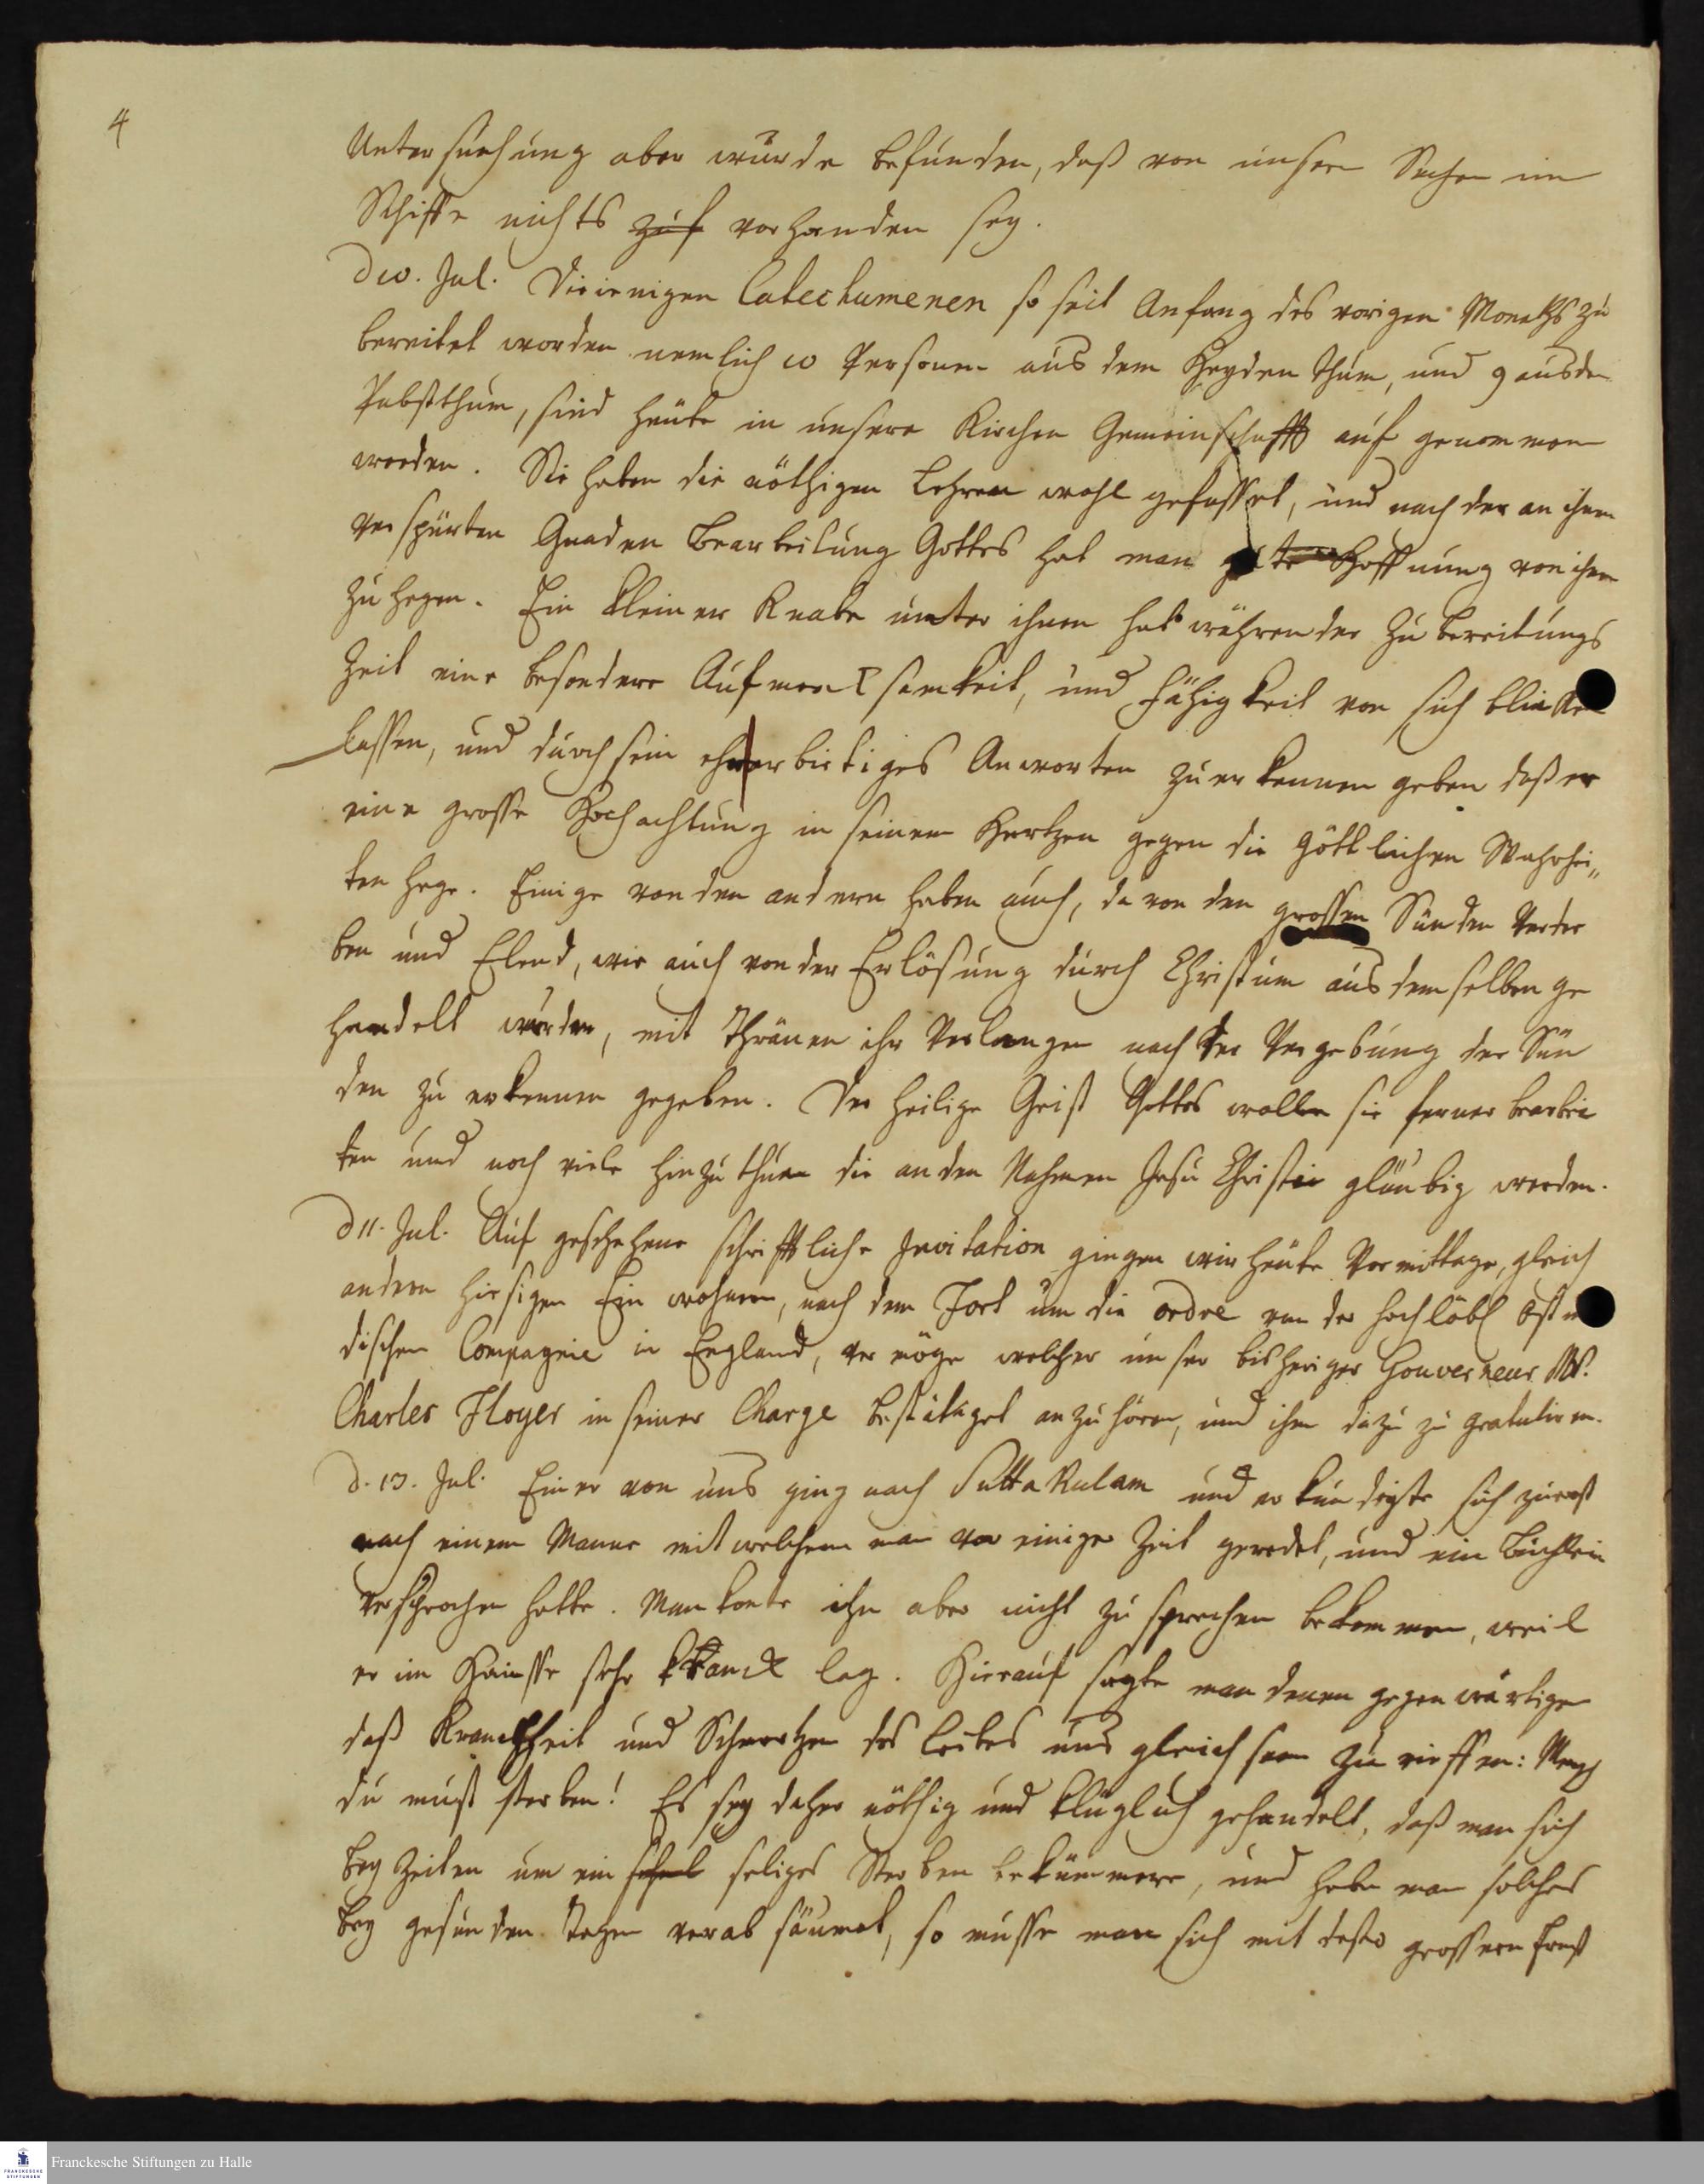 4
Untersuchung aber wurde befunden, daß von unsern Sachen im
Schiffe nichts zuf vorhanden sey.
D 10. Jul. Diejenigen Catechumenen so seit Anfang des vorigen Monaths zu
bereitet worden nemlich 10 Personen aus dem Heydenthum, und 9 aus dem
Pabstthum, sind heute in unsere Kirchen Gemeinschafft aufgenommen
worden. Sie haben die nöthigen Lehren wohl gefasset, und nach der an ihnen
verspürten Gnaden Bearbeitung Gottes hat man gute Hoffnung von ihnen
zu hegen. Ein kleiner Knabe unter ihnen hat während der Zubereitungs
Zeit eine besondere Aufmercksamkeit, und Fähigkeit von sich blicken
lassen, und durch sein ehrerbietiges Anworten zuerkennen geben daß er
eine grosse Hochachtung in seinem Hertzen gegen die Göttlichen Wahrhei„
ten hege. Einige von den andern haben auch, da von dem grossen Sünden Verder
ben und Elend, wie auch von der Erlösung durch Christum aus demselben ge
handelt wurde, mit Thränen ihr Verlangen nach der Vergebung der Sün
den zu erkennen gegeben. Der heilige Geist Gottes wolle sie ferner bearbei
ten und noch viele hinzu thun die an den Nahmen Jesu Christi gläubig werden.
D 11. Jul. Auf geschehene schrifftliche Invitation gingen wir heute Vormittage, gleich
andern hiesigen Einwohnern, nach dem Fort um die ordre von der hochlöbl Ostin
dischen Compagnie in England, vermöge welcher unser bisheriger Gouverneur Mr.
Charles Floyer in seiner Charge bestätiget anzuhören, und ihm dazu zu gratuliren.
d. 13. Jul. Einer von uns ging nach Puttakulam und erkundigte sich zuerst
nach einem Manne mit welchem man vor einiger Zeit geredet, und ein Büchlein
versprochen hatte. Man konte ihn aber nicht zu sprechen bekommen, weil
er im Hausse sehr kranck lag. Hierauf sagte man denen gegenwärtigen
daß Kranckheit und Schmertzen des Leibes uns gleichsam zu rieffen: Mensch
du must sterben! Es sey daher nöthig und klüglich gehandelt, daß man sich
bey Zeiten um ein sehel seliges Sterben bekümmere, und habe man solches
bey gesunden Tagen verabsäumet, so müsse man sich mit desto grossern Ernst
Franckesche Stiftungen zu Halle